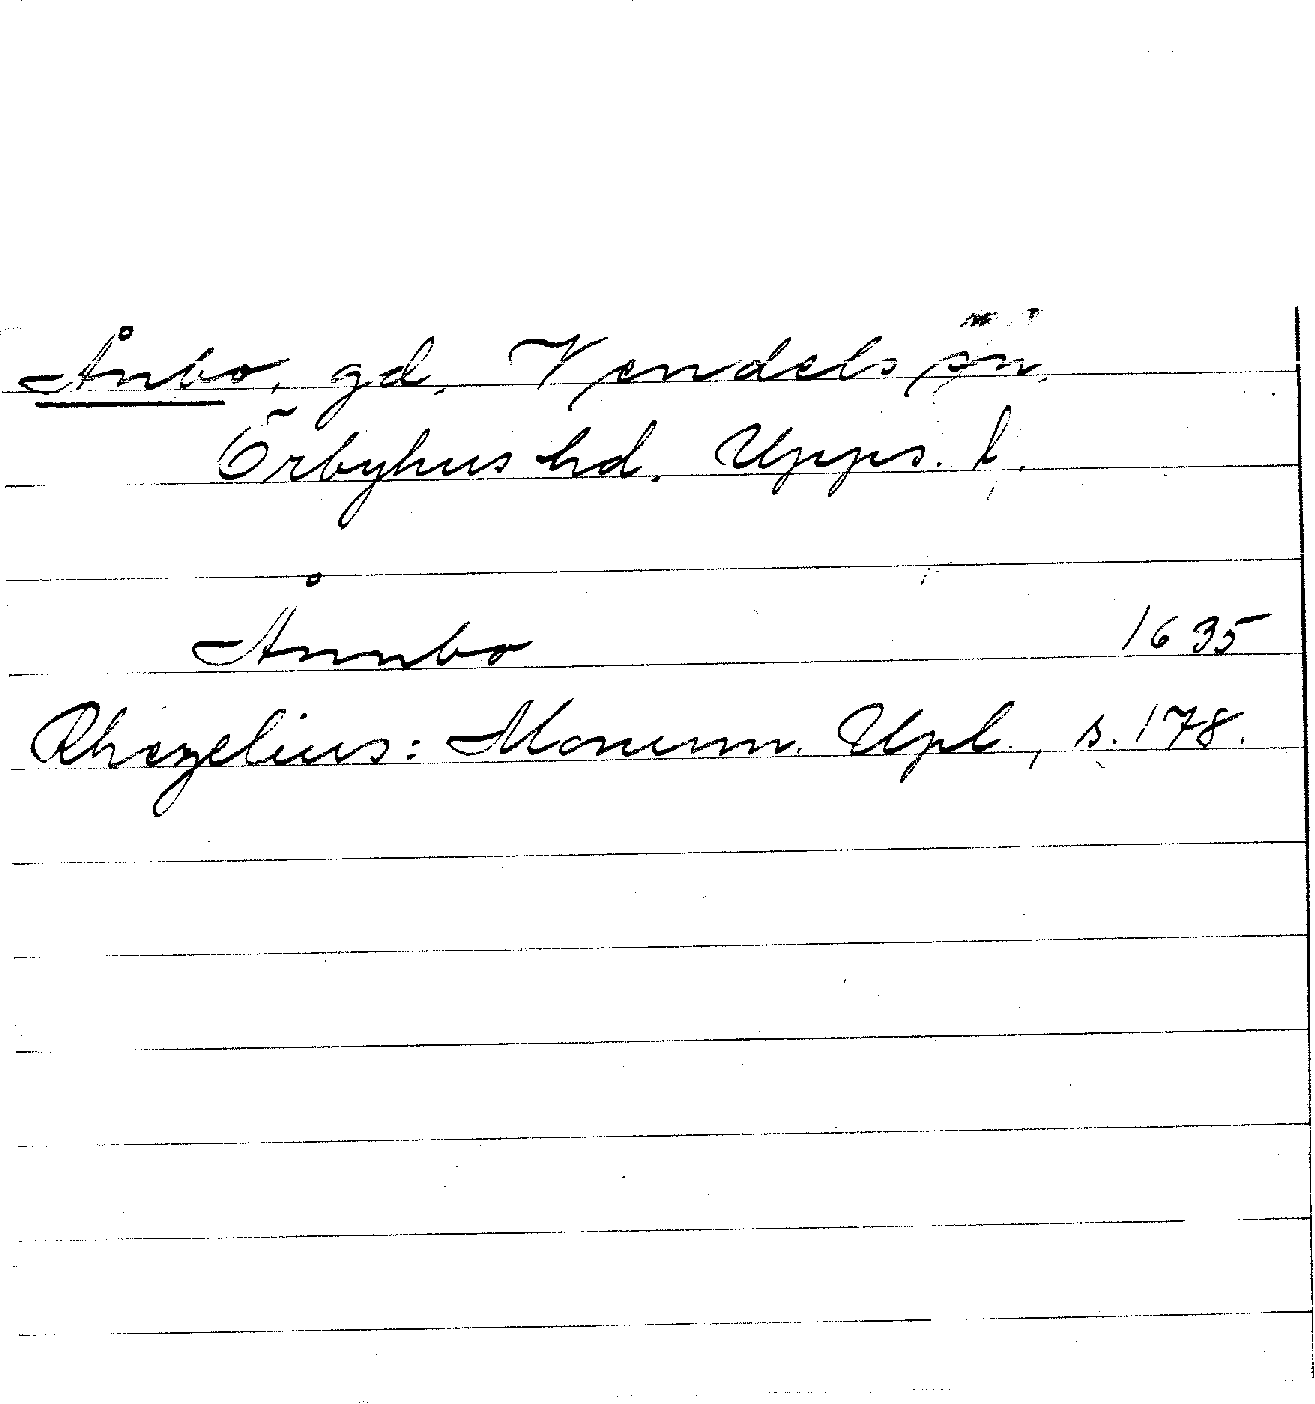 Ånbo, gd, Vendels sn.
Örbyhus hd. Upps. l.
Ånnbo 1635
Rhezelius: Monum. Upl., s. 178.